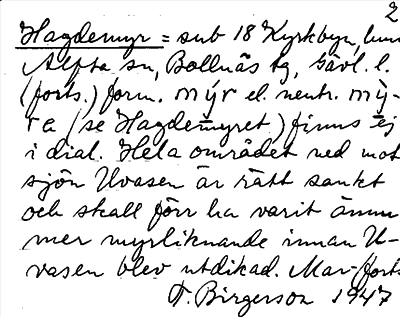 2
Hagdemyr = sub 18 Kyrkbyn,
Alfta sn, Bollnäs tg, Gävl. l.
(forts.) form. mýr el. neutr. mỳ-
ra (se Hagdemyret) finns ej
i dial. Hela området ned mot
sjön Uvasen är rätt sankt
och skall förr ha varit ännu
mer myrliknande innan U-
vasen blev utdikad. Mar- forts
T. Birgerson 1947